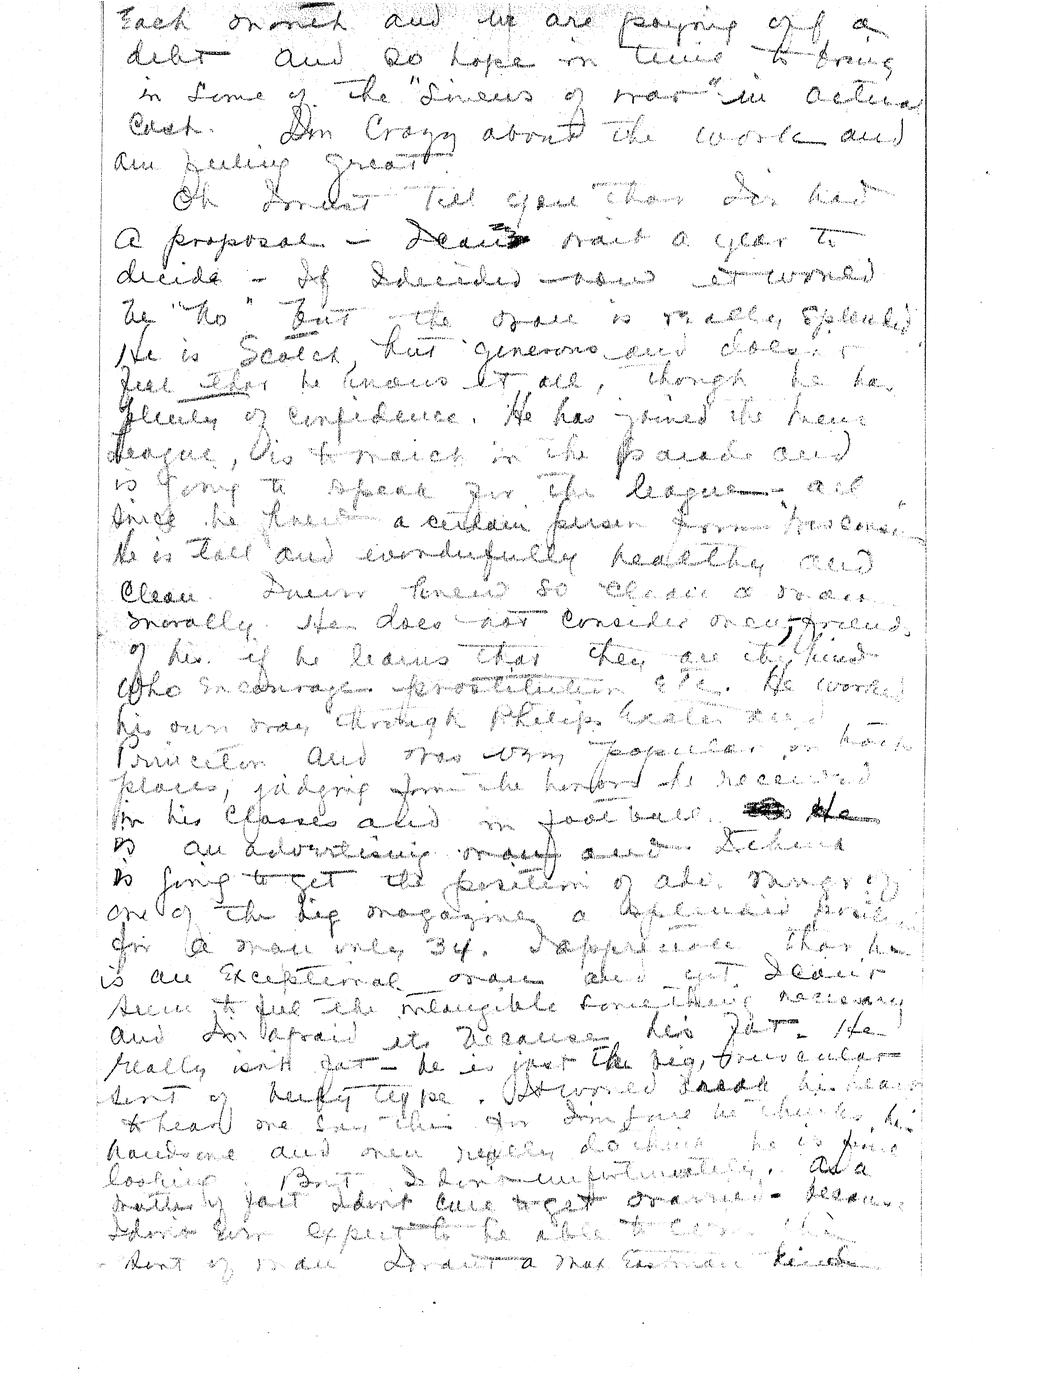 Each month and we are paying off a
debt and so hope in time to bring
in some of the "Sineus of war" in actual
Cash. I'm Crazy about the work and
am feeling great.
Oh I must tell you that I've had
a proposal - I can wait a year to
decide - If I decided now it would
be "No" But the man is really splendid
He is Scotch, but generous and doesn't
feel that he knows it all, though he has
plenty of confidence. He has joined the mens
league, is to march in the parade and
is going to speak for the league - all
since he knew a certain person from Wisconsin
He is tall and wonderfully healthy and
Clean. I never knew so clean a man
morally. He does not consider men friends
of his if he learns that they are the kind
who encourage prostitution etc. He worked
his own way through Philips Exeter and
Princeton and was very popular in both
places, judging from the honors he received
in his Classes and in football. He
is an advertising man and I think
is going to get the position of adv. mangr of
one of the big magazines a splendid
for a man only 34. I appreciate that he
is an Exceptional man and yet I can't
seem to feel the intangible something necessary
and I'm afraid its because his fat. He
really isn't fat - he is just the big, muscular
sort of hefty type. It would break his heart
to hear me say this for I'm sure he thinks he's
handsome and men really do think he is fine
looking. But I don't unfortunately. As a
matter of fact I don't care to get married - because
I don't Ever expect to be able to the
sort of man I want a Max Eastman kind